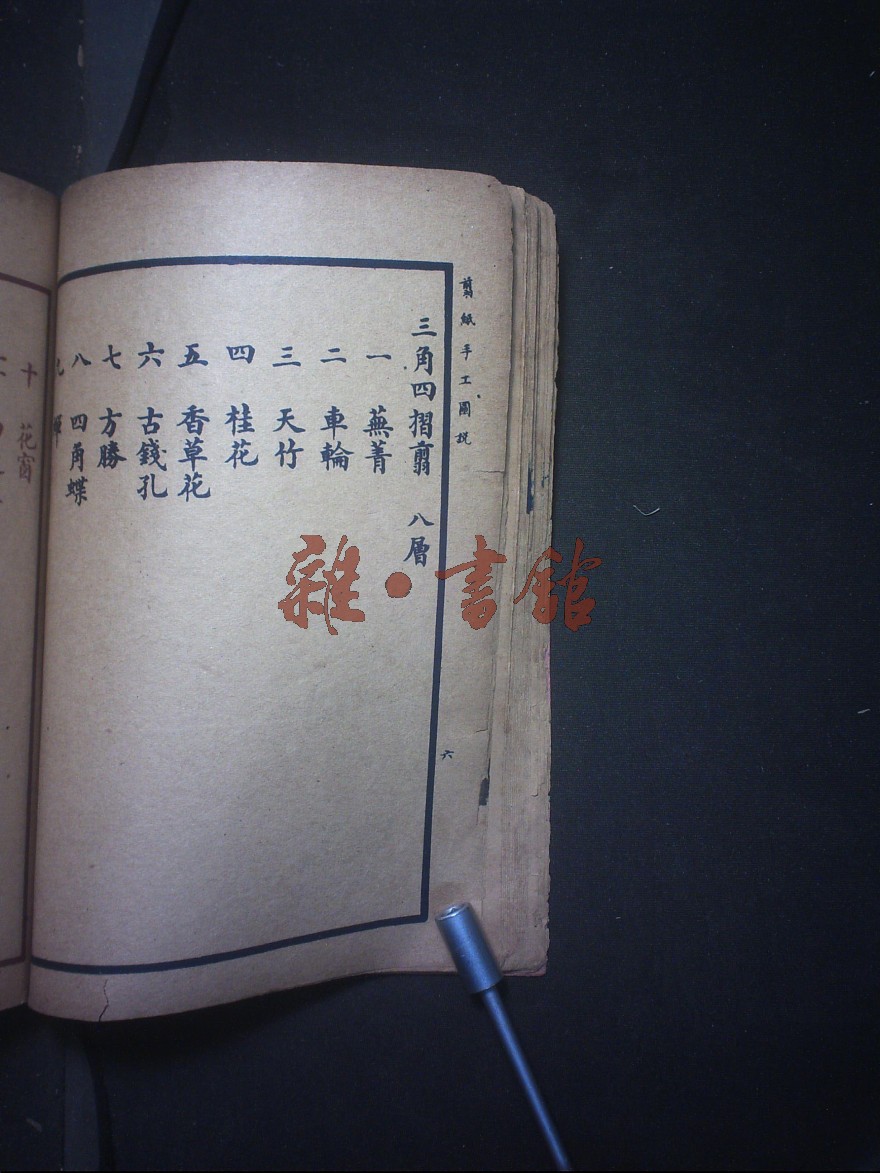 剪紙手工圖說
三角四摺剪 八層
一 蕪菁
二 車輪
三 天竹
四 桂花
五 香草花
六 古錢孔
七 方勝
八 四角蝶
九
十 花窗
六
雜·書館